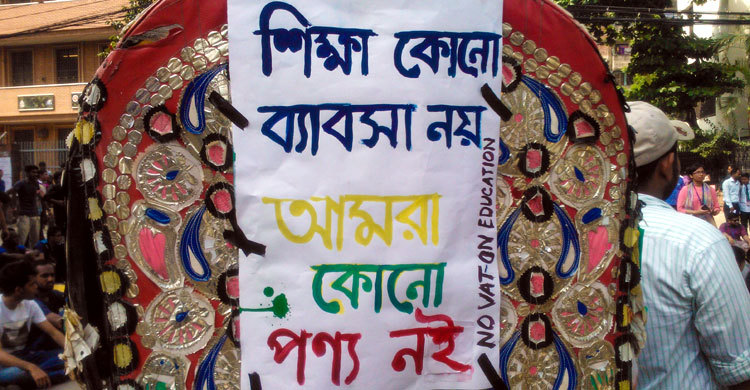 শিক্ষা কোনো
ব্যাবসা নয়
আমরা
কোনো
পণ্য নই
NO VAT-ON EDUCATION